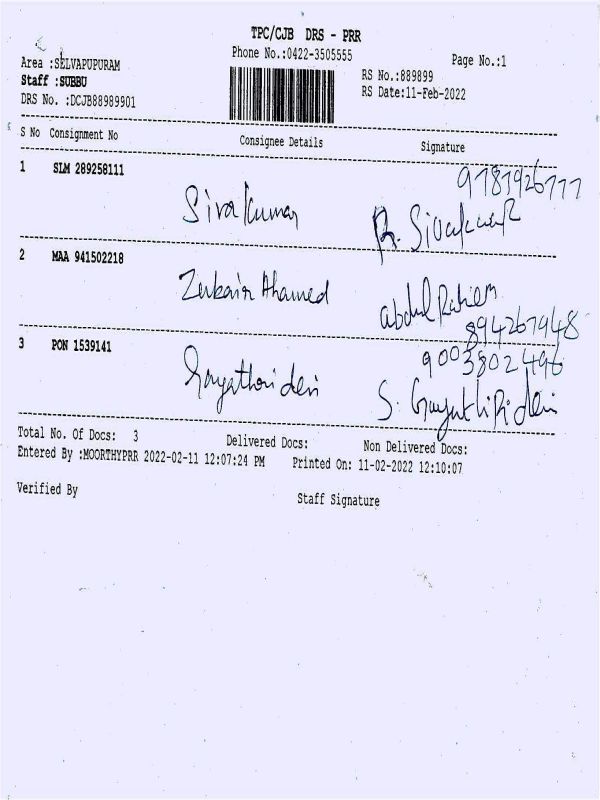 TPC/CJB DRS - PRR
Phone No.:0422-3505555
Page No.:1
Area :SELVAPUPURAM
RS No.:889899
Staff :SUBBU
RS Date:11-Feb-2022
DRS No. :DCJB88989901
S No Consignment No Consignee Details Signature
9787926777
1 SLM 289258111
Sivakumar R. Sivakumar
2 MAA 941502218
Zubair Ahamed abdul Rahem
894267948
3 PON 1539141
9003802496
Gayathri devi S. Gayathiri devi
Total No. Of Docs: 3 Delivered Docs: Non Delivered Docs:
Entered By :MOORTHYPRR 2022-02-11 12:07:24 PM Printed On: 11-02-2022 12:10:07
Verified By
Staff Signature